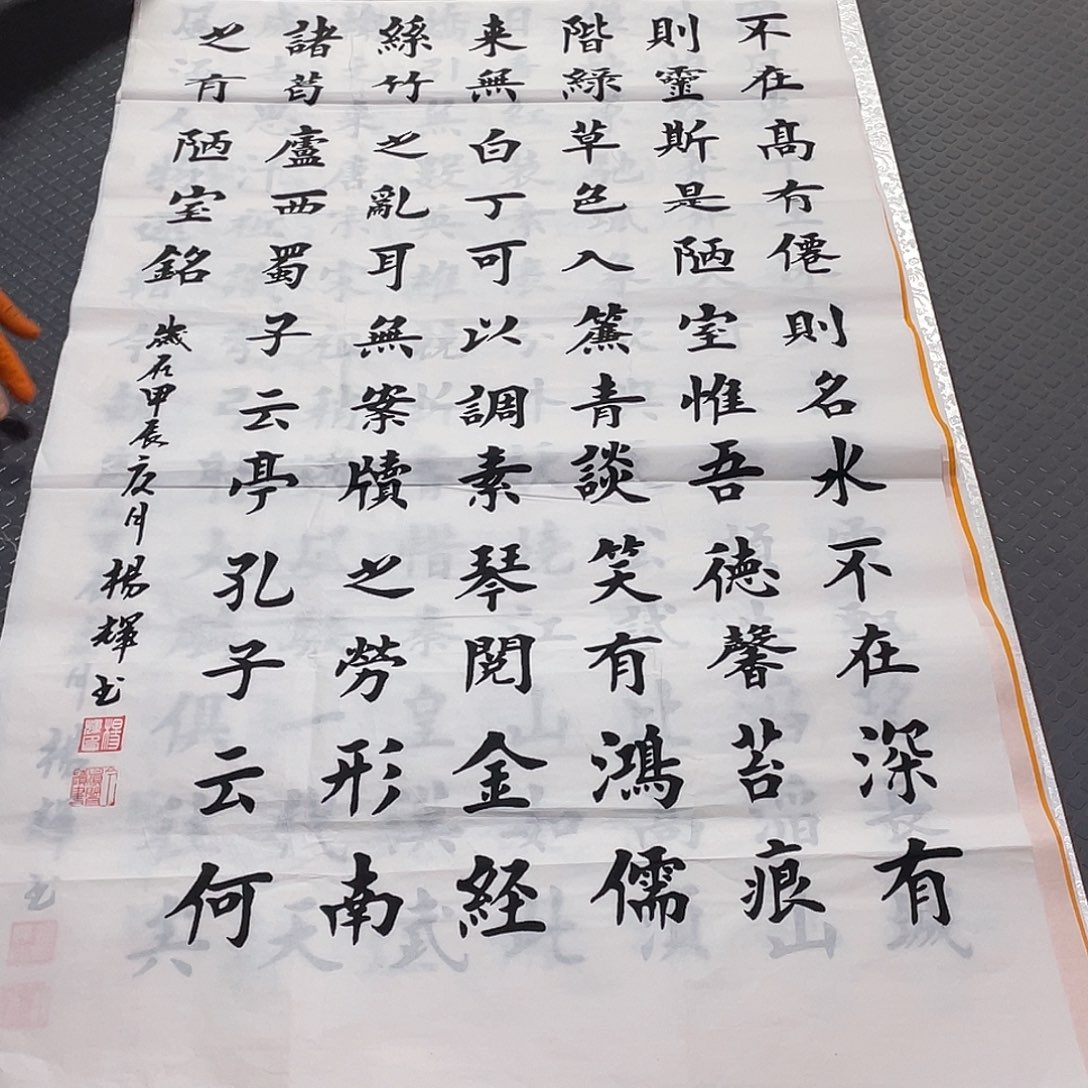 不在髙有僊則名水不在深有
則靈斯是陋室惟吾徳馨苔痕
階緑草色入簾青談笑有鴻儒
来無白丁可以調素琴閲金経
絲竹之亂耳無案牘之勞形南
諸葛廬西蜀子云亭孔子云何
之有陋室銘
歲在甲辰夏月楊輝书